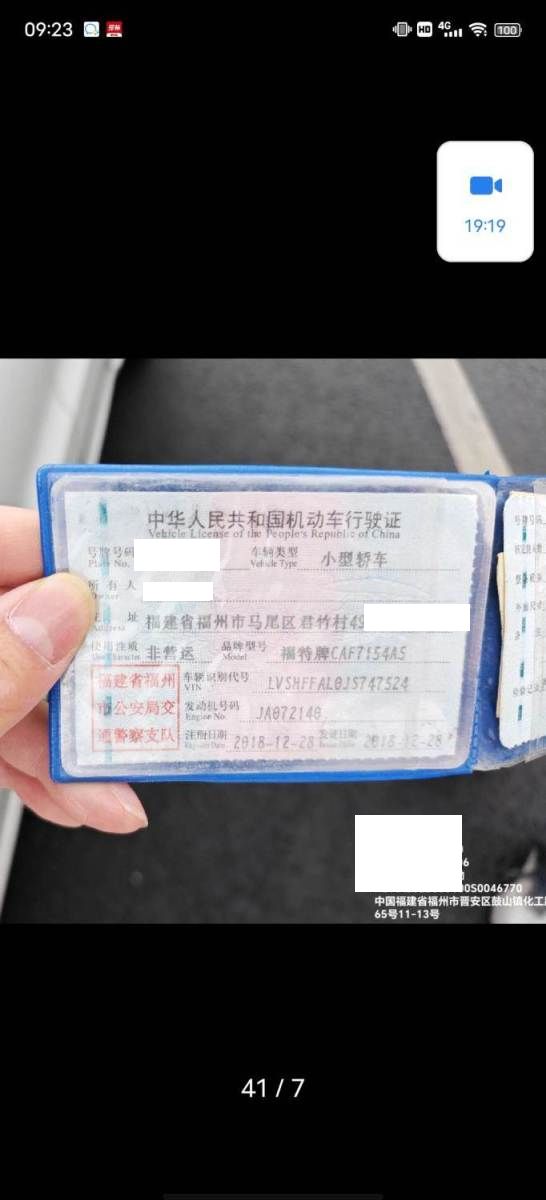 09:23
HD 4G 100
19:19
中华人民共和国机动车行驶证
Vehicle License of the People's Republic of China
号牌号码
Plate No.
车辆类型 小型轿车
Vehicle Type
所有人
Owner
住址 福建省福州市马尾区君竹村49
Address
使用性质 非营运 品牌型号 福特牌CAF7154A5
Use Character Model
福建省福州
市公安局交
通警察支队
车辆识别代号 LVSHFFAL0JS747524
VIN
发动机号码 JA072140
Engine No.
注册日期 2018-12-28 发证日期 2018-12-28
Register Date Issue Date
号牌号码
6
00S0046770
中国福建省福州市晋安区鼓山镇化工
65号11-13号
41 / 7